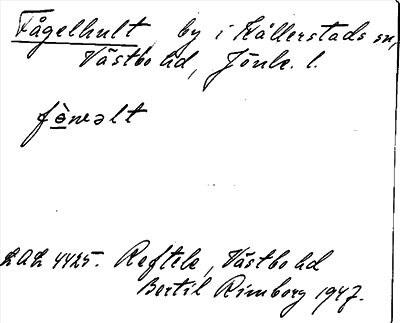 Fågelhult by i Kållerstads sn,
Västbo hd, Jönk. l.
fè̱wəlt
LAL 4425. Reftele, Västbo hd
Bertil Rimborg 1947.